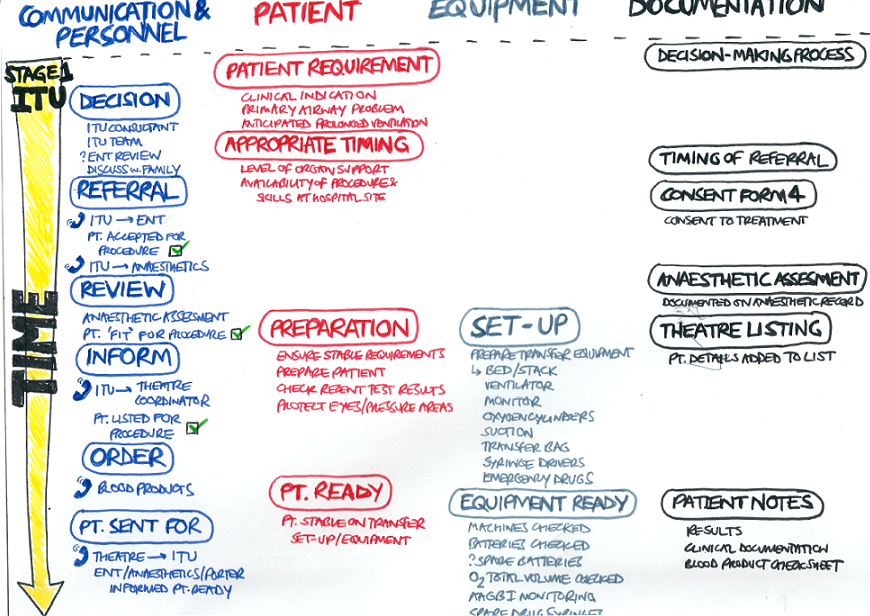 COMMUNICATION &
PERSONNEL
PATIENT
EQUIPMENT
DOCUMENTATION
STAGE 1
ITU
TIME
DECISION
ITU CONSULTANT
ITU TEAM
? ENT REVIEW
DISCUSS W. FAMILY
REFERRAL
ITU → ENT
PT. ACCEPTED FOR
PROCEDURE ☑
ITU → ANAESTHETICS
REVIEW
ANAESTHETIC ASSESMENT
PT. 'FIT' FOR PROCEDURE ☑
INFORM
ITU → THEATRE
COORDINATOR
PT. LISTED FOR
PROCEDURE ☑
ORDER
BLOOD PRODUCTS
PT. SENT FOR
THEATRE → ITU
ENT/ANAESTHETICS/PORTER
INFORMED PT. READY
PATIENT REQUIREMENT
CLINICAL INDICATION
PRIMARY AIRWAY PROBLEM
ANTICIPATED PROLONGED VENTILATION
APPROPRIATE TIMING
LEVEL OF ORGAN SUPPORT
AVAILABILITY OF PROCEDURE &
SKILLS AT HOSPITAL SITE
PREPARATION
ENSURE STABLE REQUIREMENTS
PREPARE PATIENT
CHECK RECENT TEST RESULTS
PROTECT EYES/PRESSURE AREAS
PT. READY
PT. STABLE ON TRANSFER
SET-UP/EQUIPMENT
SET-UP
PREPARE TRANSFER EQUIPMENT
↳ BED/STACK
VENTILATOR
MONITOR
OXYGEN CYLINDERS
SUCTION
TRANSFER BAG
SYRINGE DRIVERS
EMERGENCY DRUGS
EQUIPMENT READY
MACHINES CHECKED
BATTERIES CHECKED
? SPARE BATTERIES
O2 TOTAL VOLUME CHECKED
AAGBI MONITORING
SPARE DRUG SYRINGES
DECISION-MAKING PROCESS
TIMING OF REFERRAL
CONSENT FORM 4
CONSENT TO TREATMENT
ANAESTHETIC ASSESMENT
DOCUMENTED ON ANAESTHETIC RECORD
THEATRE LISTING
PT. DETAILS ADDED TO LIST
PATIENT NOTES
RESULTS
CLINICAL DOCUMENTATION
BLOOD PRODUCT CHECKSHEET